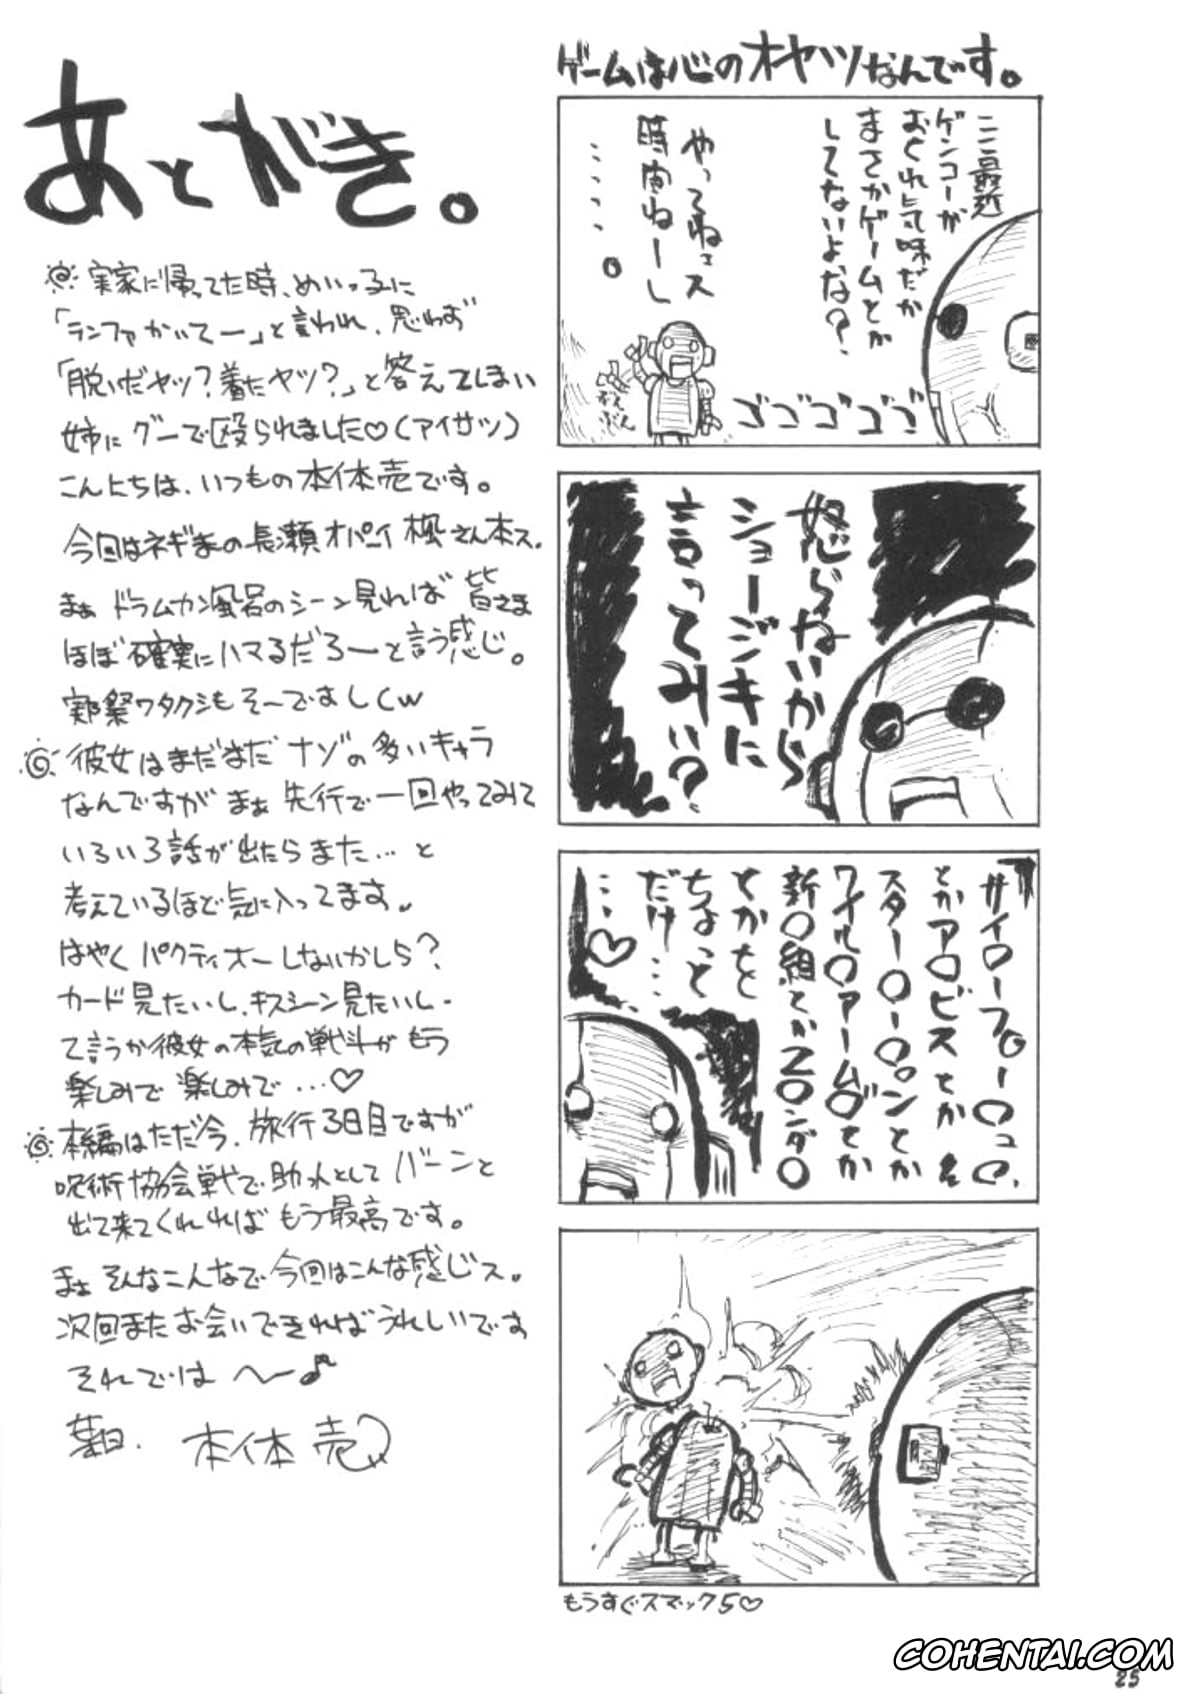 あとがき。
実家に帰ってた時、めいっ子に
「ランファかいてー」と言われ、思わず
「脱いだヤツ？着たヤツ？」と答えてしまい
姉にグーで殴られました♡(アイサツ)
こんにちは、いつもの本体売です。
今回はネギまの長瀬オパーイ楓さん本ス。
まぁドラムカン風呂のシーン見れば皆さま
ほぼ確実にハマるだろーと言う感じ。
実際ワタクシもそーでましくw
彼女はまだまだナゾの多いキャラ
なんですがまぁ先行で一回やってみて
いろいろ話が出たらまた…と
考えているほど気に入ってます。
はやくパクティオーしないかしら？
カード見たいし、キスシーン見たいし-
て言うか彼女の本気の戦斗がもう
楽しみで楽しみで…♡
本編はただ今、旅行3日目ですが
呪術協会戦で助っ人としてバーンと
出て来てくれればもう最高です。
まぁそんなこんなで今回はこんな感じス。
次回またお会いできればうれしいです
それではへー♪
本体売
ゲームは心のオヤツなんです。
ここ最近
ゲンコーが
おくれ気味だか
まさかゲームとか
してないよな？
やってねェス
時間ねーし
・・・・・。
ゴゴゴゴゴ
怒らねいから
ショージキに
言ってみい？
サイ○ーフ○ー○ユ○、
とかア○ビスとか
スター○ー○ンとか
ワイル○アーム○とか
新○組とかZ○ンダ○
とかをと
ちょっと
だけ…
…♡
もうすぐスマック5♡
COHENTAI.COM
25